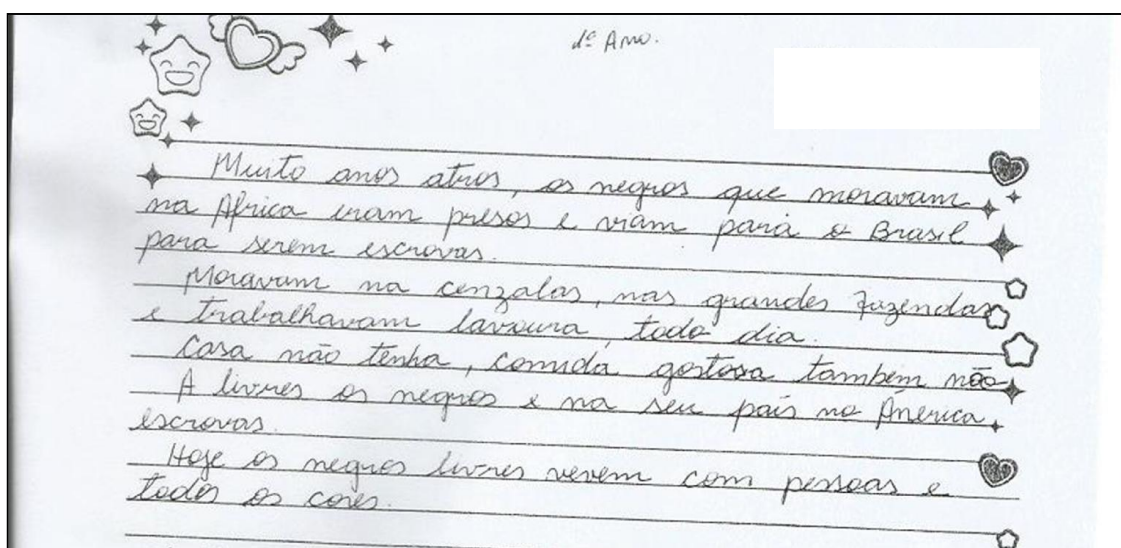 1º Ano.
Muito anos atras, os negros que moravam
na Africa eram presos e viam para o Brasil
para serem escrovas.
Moravam na cenzalas, nas grandes fazendas
e trabalhavam lavoura, todo dia.
Casa não tenha, comida gostosa também não
A livres os negros e na seu país na América,
escrovas.
Hoje os negros livres vevem com pessoas e
todos os cores.